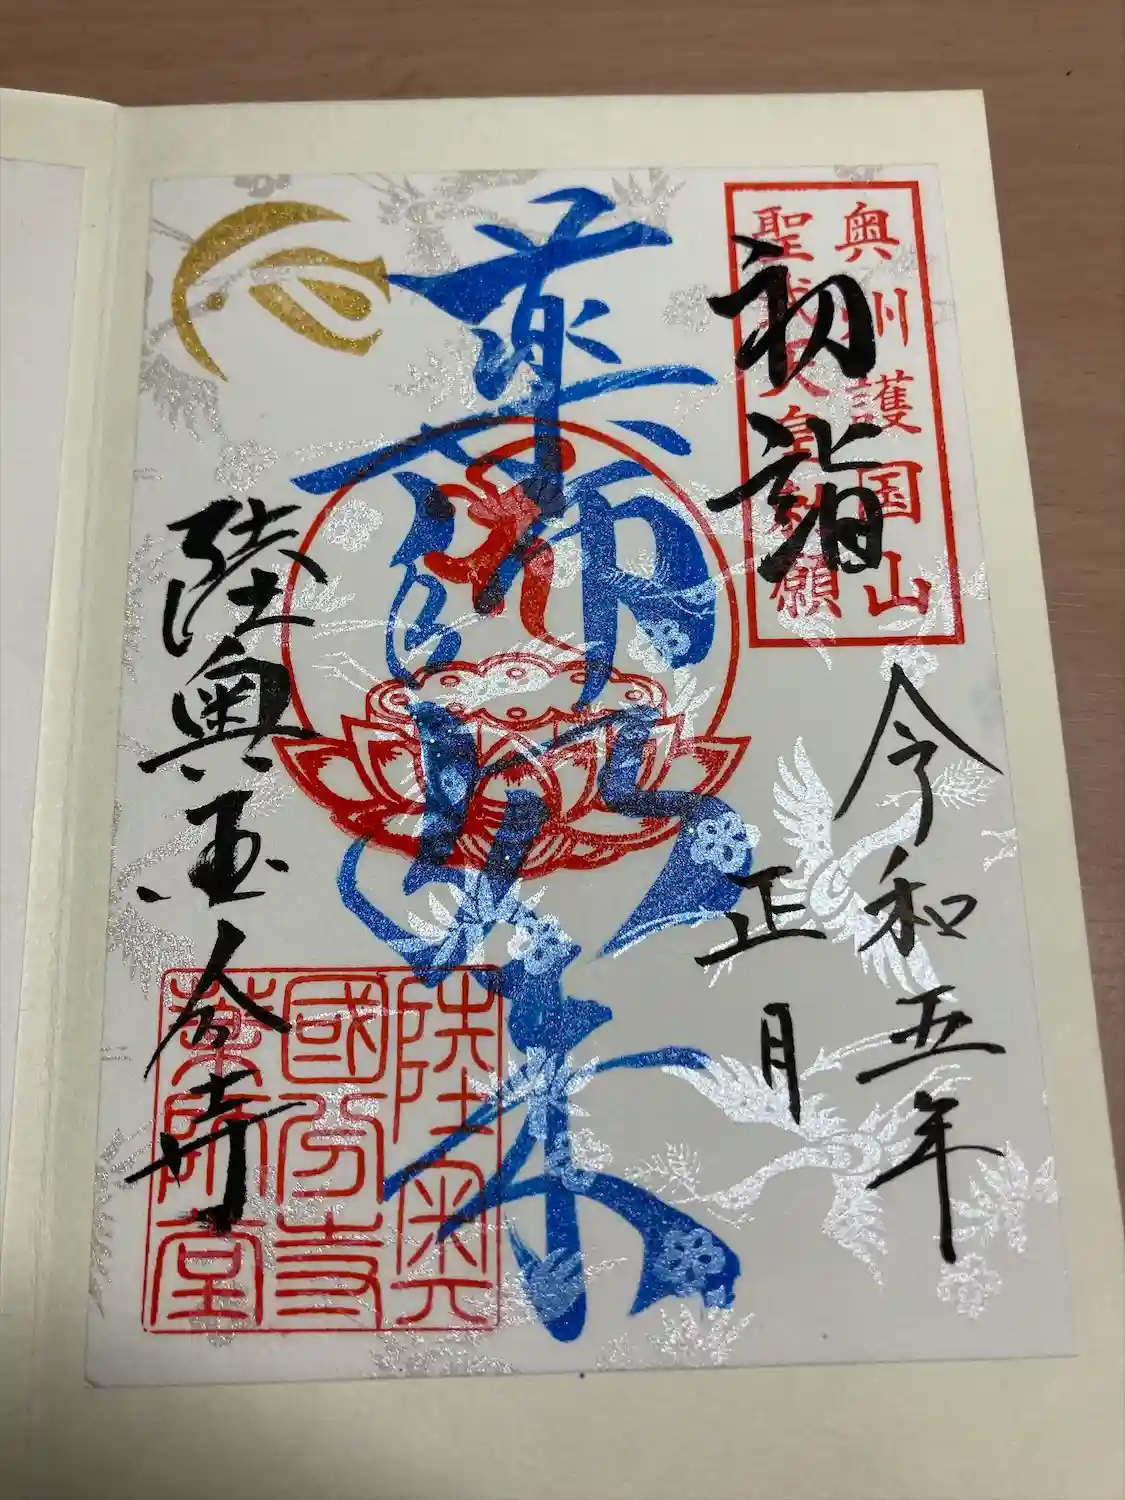 奥州護国山
聖武天皇勅願
初詣
令和五年
正月
薬師如来
陸奥国分寺
陸奥
國分寺
薬師堂